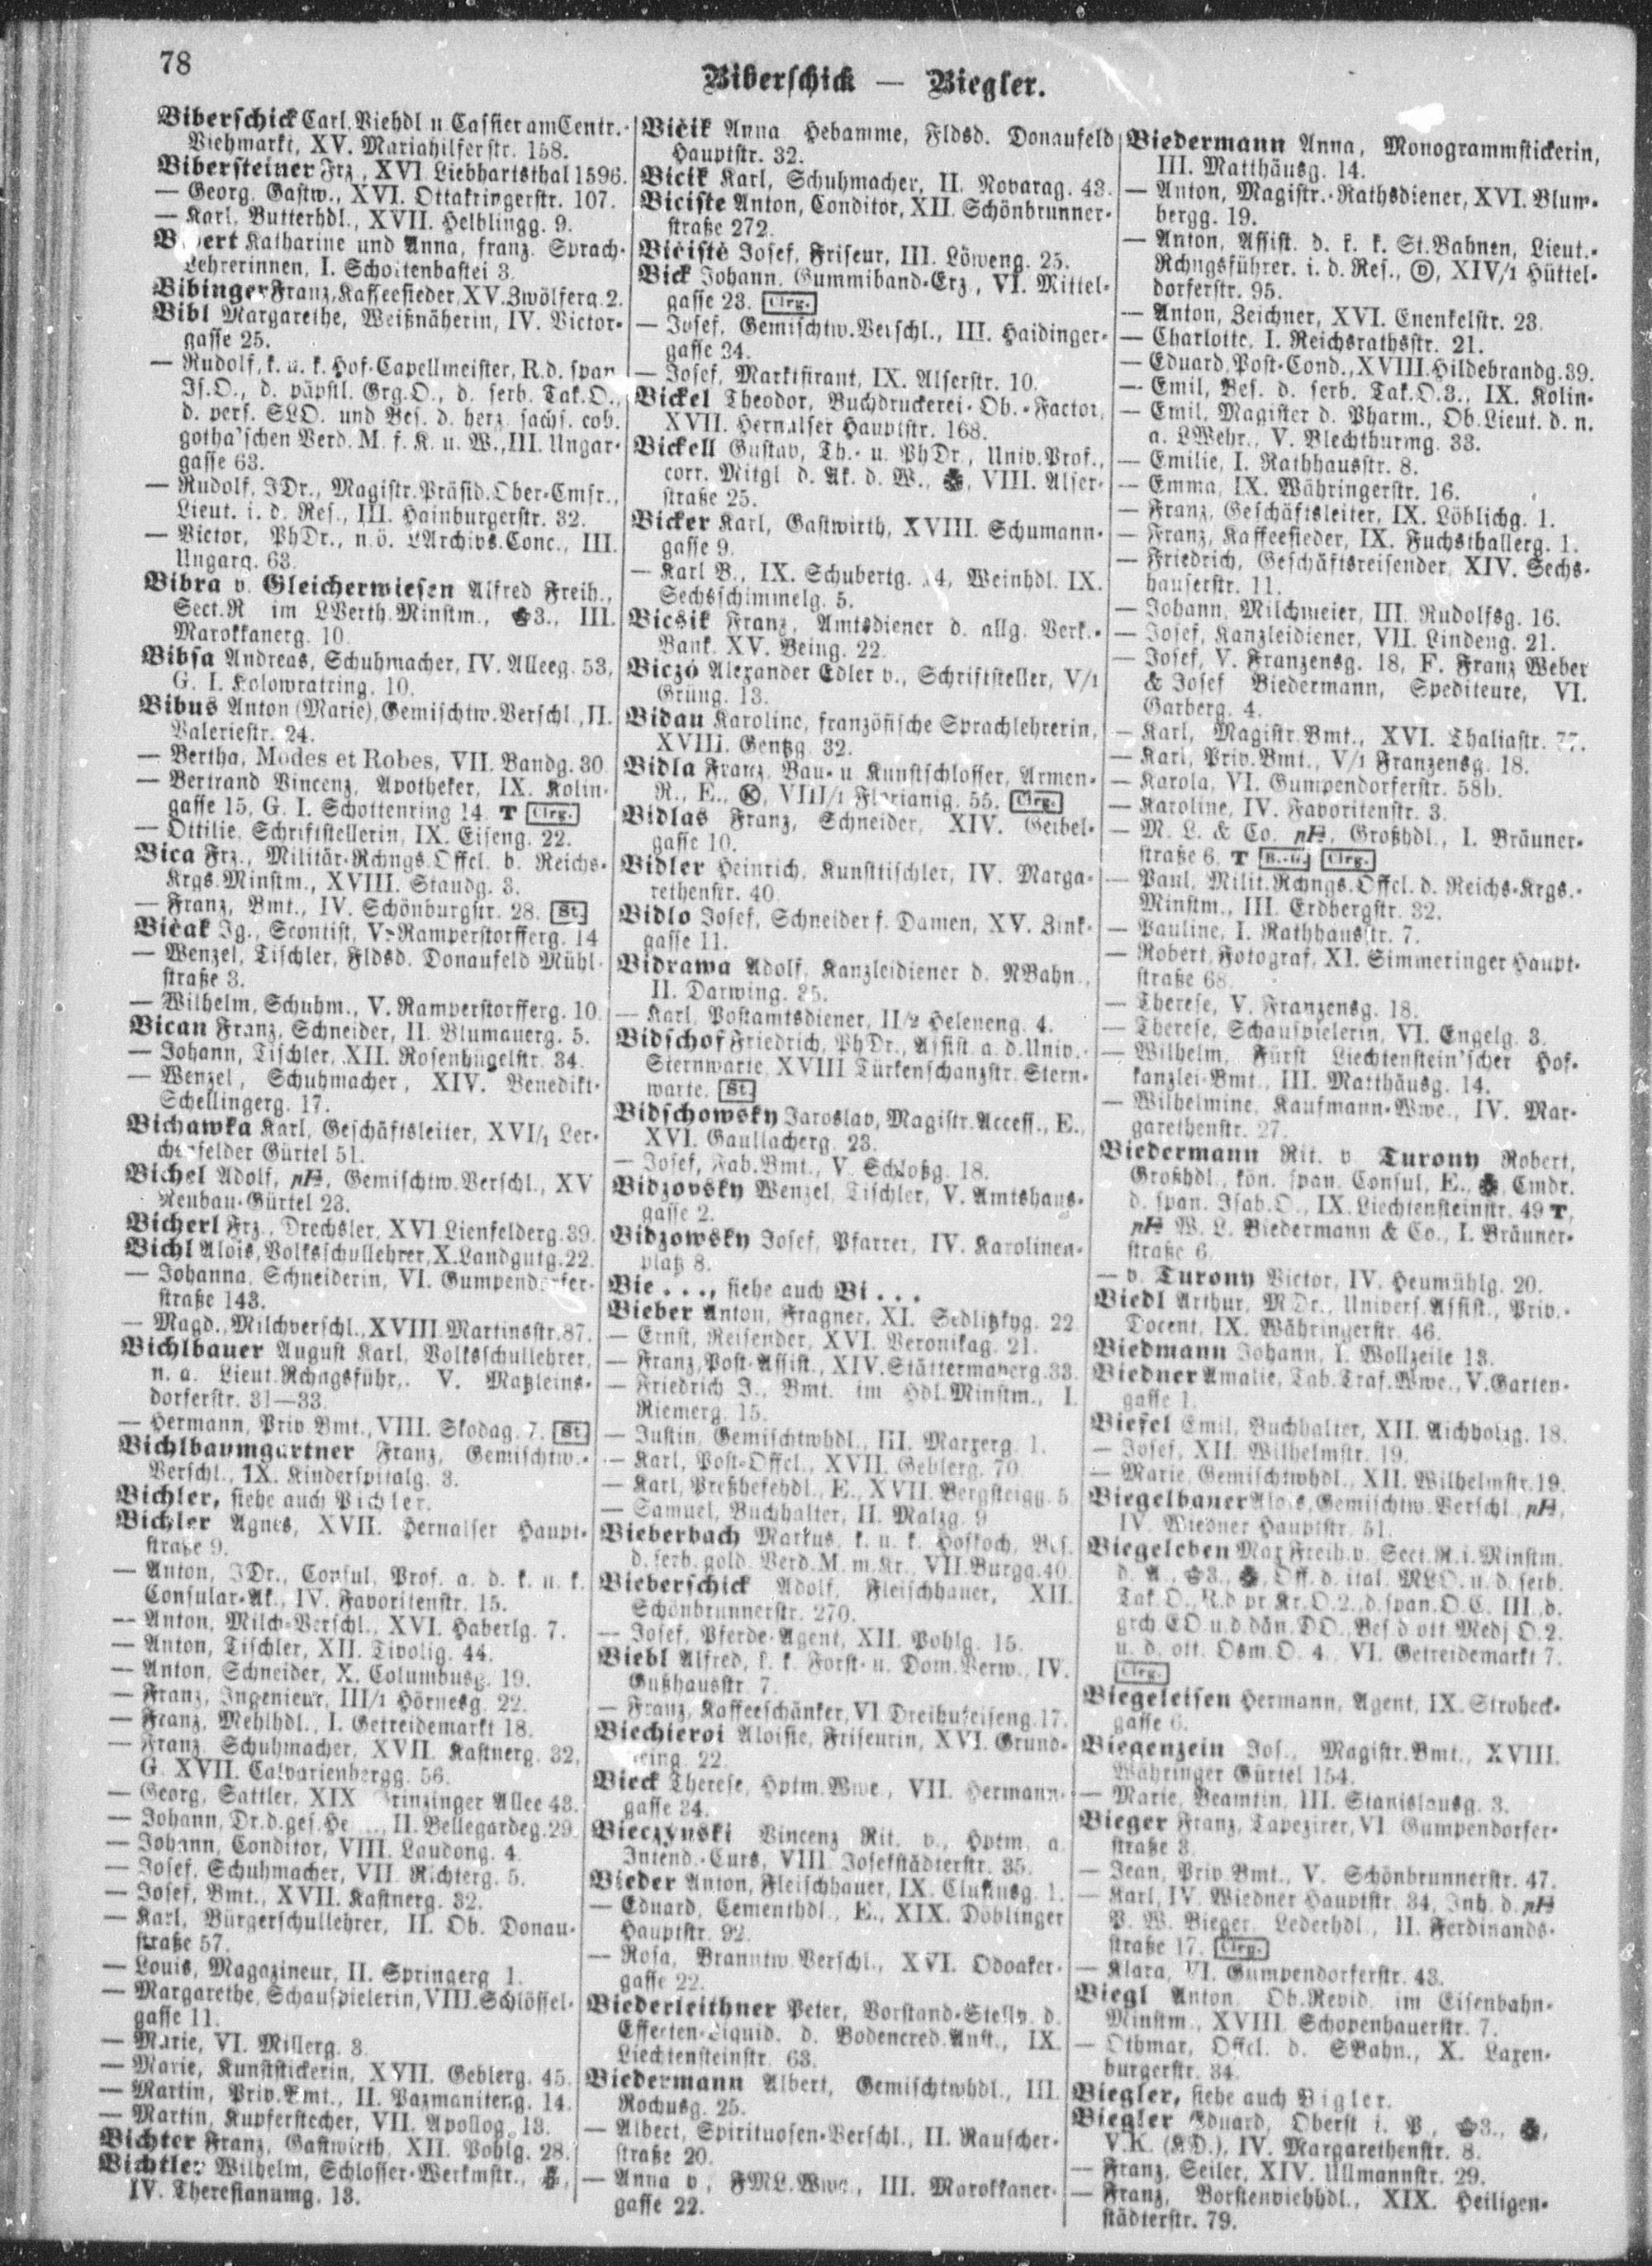 78
Biberschick — Biegler.
Biberschick Carl, Viehdl u. Cassier am Centr.-
Viehmarkt, XV. Mariahilferstr. 158.
Bibersteiner Frz., XVI Liebhartsthal 1596.
— Georg, Gastw., XVI. Ottakringerstr. 107.
— Karl, Butterhdl., XVII. Helblingg. 9.
Katharine und Anna, franz. Sprach-
Lehrerinnen, I. Schottenbastei 3.
Bibinger Franz, Kaffeesieder, XV. Zwölferg. 2.
Bibl Margarethe, Weißnäherin, IV. Victor-
gasse 25.
— Rudolf, k. u. k. Hof-Capellmeister, R. d. span
Is.O., d. päpstl. Grg.O., d. serb. Tak.O.,
d. pers. SLO. und Bes. d. herz. sachs. cob.
gotha'schen Verd. M. f. K. u. W., III. Ungar-
gasse 63.
— Rudolf, JDr., Magistr.Präsid.Ober-Cmsr.,
Lieut. i. d. Res., III. Hainburgerstr. 32.
— Victor, PhDr., n.ö. LArchivs.Conc., III.
Ungarg. 63.
Bibra v. Gleicherwiesen Alfred Freih.,
Sect.R im LVerth.Minstm., 3., III.
Marokkanerg. 10.
Bibsa Andreas, Schuhmacher, IV. Alleeg. 53,
G. I. Kolowratring. 10.
Bibus Anton (Marie), Gemischtw.Verschl., II.
Valeriestr. 24.
— Bertha, Modes et Robes, VII. Bandg. 30
— Bertrand Vincenz, Apotheker, IX. Kolin-
gasse 15, G. I. Schottenring 14. T Clrg.
— Ottilie, Schriftstellerin, IX. Eiseng. 22.
Bica Frz., Militär-Rchngs.Offcl. b. Reichs-
Krgs.Minstm., XVIII. Staudg. 3.
— Franz, Bmt., IV. Schönburgstr. 28. St.
Bičak Ig., Scontist, V. Ramperstorfferg. 14
— Wenzel, Tischler, Fldsd. Donaufeld Mühl-
straße 3.
— Wilhelm, Schuhm., V. Ramperstorfferg. 10.
Bican Franz, Schneider, II. Blumauerg. 5.
— Johann, Tischler, XII. Rosenhügelstr. 34.
— Wenzel, Schuhmacher, XIV. Benedikt-
Schellingerg. 17.
Bichawka Karl, Geschäftsleiter, XVI/1 Ler-
chenfelder Gürtel 51.
Bichel Adolf, pH, Gemischtw.Verschl., XV
Neubau-Gürtel 23.
Bicherl Frz., Drechsler, XVI Lienfelderg. 39.
Bichl Alois, Volksschullehrer, X. Landgutg. 22.
— Johanna, Schneiderin, VI. Gumpendorfer-
straße 143.
— Magd., Milchverschl., XVIII. Martinsstr. 87.
Bichlbauer August Karl, Volksschullehrer,
n. a. Lieut.Rchngsführ., V. Matzleins-
dorferstr. 31—33.
— Hermann, Priv.Bmt., VIII. Skodag. 7. St.
Bichlbaumgartner Franz, Gemischtw.-
Verschl., IX. Kinderspitalg. 3.
Bichler, siehe auch Pichler.
Bichler Agnes, XVII. Hernalser Haupt-
straße 9.
— Anton, JDr., Consul, Prof. a. d. k. u. k.
Consular-Ak., IV. Favoritenstr. 15.
— Anton, Milch-Verschl., XVI. Haberlg. 7.
— Anton, Tischler, XII. Tivolig. 44.
— Anton, Schneider, X. Columbusg. 19.
— Franz, Ingenieur, III/1 Hörnesg. 22.
— Franz, Mehlhdl., I. Getreidemarkt 18.
— Franz, Schuhmacher, XVII. Kastnerg. 32,
G. XVII. Calvarienbergg. 56.
— Georg, Sattler, XIX Grinzinger Allee 43.
— Johann, Dr.d.ges.He..., II. Bellegardeg. 29.
— Johann, Conditor, VIII. Laudong. 4.
— Josef, Schuhmacher, VII. Richterg. 5.
— Josef, Bmt., XVII. Kastnerg. 32.
— Karl, Bürgerschullehrer, II. Ob. Donau-
straße 57.
— Louis, Magazineur, II. Springerg 1.
— Margarethe, Schauspielerin, VIII. Schlössel-
gasse 11.
— Marie, VI. Millerg. 3.
— Marie, Kunststickerin, XVII. Geblerg. 45.
— Martin, Priv.Bmt., II. Pazmaniteng. 14.
— Martin, Kupferstecher, VII. Apollog. 13.
Bichter Franz, Gastwirth, XII. Pohlg. 28.
Bichtler Wilhelm, Schlosser-Werkmstr.,
IV. Theresianumg. 13.
Bičik Anna Hebamme, Fldsd. Donaufeld
Hauptstr. 32.
Bicik Karl, Schuhmacher, II. Novarag. 43.
Biciste Anton, Conditor, XII. Schönbrunner-
straße 272.
Bičistě Josef, Friseur, III. Löweng. 25.
Bick Johann, Gummiband-Erz., VI. Mittel-
gasse 23. Clrg.
— Josef, Gemischtw.Verschl., III. Haidinger-
gasse 34.
— Josef, Marktfirant, IX. Alserstr. 10.
Bickel Theodor, Buchdruckerei-Ob.-Factor,
XVII. Hernalser Hauptstr. 168.
Bickell Gustav, Th.- u. PhDr., Univ.Prof.,
corr. Mitgl d. Ak. d. W., VIII. Alser-
straße 25.
Bicker Karl, Gastwirth, XVIII. Schumann-
gasse 9.
— Karl B., IX. Schubertg. 14, Weinhdl. IX.
Sechsschimmelg. 5.
Bicsik Franz, Amtsdiener d. allg. Verk.-
Bank. XV. Being. 22.
Biczó Alexander Edler v., Schriftsteller, V/1
Grüng. 13.
Bidau Karoline, französische Sprachlehrerin,
XVIII. Gentzg. 32.
Bidla Franz, Bau- u. Kunstschlosser, Armen-
R., E., K, VIII/1 Florianig. 55. Clrg.
Bidlas Franz, Schneider, XIV. Geibel-
gasse 10.
Bidler Heinrich, Kunsttischler, IV. Marga-
rethenstr. 40.
Bidlo Josef, Schneider f. Damen, XV. Zink-
gasse 11.
Bidrawa Adolf, Kanzleidiener d. NBahn.,
II. Darwing. 35.
— Karl, Postamtsdiener, II/2 Heleneng. 4.
Bidschof Friedrich, PhDr., Assist. a. d. Univ.-
Sternwarte, XVIII Türkenschanzstr. Stern-
warte. St.
Bidschowsky Jaroslav, Magistr.Access., E.,
XVI. Gaullacherg. 23.
— Josef, Fab.Bmt., V. Schloßg. 18.
Bidzovsky Wenzel, Tischler, V. Amtshaus-
gasse 2.
Bidzowsky Josef, Pfarrer, IV. Karolinen-
platz 8.
Bie . . ., siehe auch Bi . . .
Bieber Anton, Fragner, XI. Sedlitzkyg. 22
— Ernst, Reisender, XVI. Veronikag. 21.
— Franz, Post-Assist., XIV. Stättermayerg. 33.
— Friedrich J., Bmt. im Hdl.Minstm., I.
Riemerg. 15.
— Justin, Gemischtwhdl., III. Marxerg. 1.
— Karl, Post-Offcl., XVII. Geblerg. 70.
— Karl, Preßhefehdl., E., XVII. Bergsteigg. 5
— Samuel, Buchhalter, II. Malzg. 9
Bieberbach Markus, k. u. k. Hofkoch, Bes.
d. serb. gold. Verd.M. m.Kr., VII. Burgg. 40.
Bieberschick Adolf, Fleischhauer, XII.
Schönbrunnerstr. 270.
— Josef, Pferde-Agent, XII. Pohlg. 15.
Biebl Alfred, k. k. Forst- u. Dom.Verw., IV.
Gußhausstr. 7.
— Franz, Kaffeeschänker, VI Dreihufeiseng. 17.
Biechieroi Aloisie, Friseurin, XVI. Grund-
steing. 22.
Bieck Therese, Hptm.Wwe., VII. Hermann-
gasse 34.
Bieczynski Vincenz Rit. v., Hptm. a.
Intend.-Curs, VIII. Josefstädterstr. 35.
Bieder Anton, Fleischhauer, IX. Clusiusg. 1.
— Eduard, Cementhdl., E., XIX. Döblinger
Hauptstr. 92.
— Rosa, Branntw.Verschl., XVI. Odoaker-
gasse 22.
Biederleithner Peter, Vorstand-Stellv. d.
Effecten-Liquid. d. Bodencred.Anst., IX.
Liechtensteinstr. 63.
Biedermann Albert, Gemischtwhdl., III.
Rochusg. 25.
— Albert, Spirituosen-Verschl., II. Rauscher-
straße 20.
— Anna v., FML.Wwe., III. Marokkaner-
gasse 22.
Biedermann Anna, Monogrammstickerin,
III. Matthäusg. 14.
— Anton, Magistr.-Rathsdiener, XVI. Blum-
bergg. 19.
— Anton, Assist. d. k. k. St.Bahnen, Lieut.-
Rchngsführer. i. d. Res., D, XIV/1 Hüttel-
dorferstr. 95.
— Anton, Zeichner, XVI. Enenkelstr. 23.
— Charlotte, I. Reichsrathsstr. 21.
— Eduard, Post-Cond., XVIII. Hildebrandg. 39.
— Emil, Bes. d. serb. Tak.O.3., IX. Kolin-
— Emil, Magister d. Pharm., Ob.Lieut. d. n.
a. LWehr., V. Blechthurmg. 33.
— Emilie, I. Rathhausstr. 8.
— Emma, IX. Währingerstr. 16.
— Franz, Geschäftsleiter, IX. Löblichg. 1.
— Franz, Kaffeesieder, IX. Fuchsthallerg. 1.
— Friedrich, Geschäftsreisender, XIV. Sechs-
hauserstr. 11.
— Johann, Milchmeier, III. Rudolfsg. 16.
— Josef, Kanzleidiener, VII. Lindeng. 21.
— Josef, V. Franzensg. 18, F. Franz Weber
& Josef Biedermann, Spediteure, VI.
Garberg. 4.
— Karl, Magistr.Bmt., XVI. Thaliastr. 77.
— Karl, Priv.Bmt., V/1 Franzensg. 18.
— Karola, VI. Gumpendorferstr. 58b.
— Karoline, IV. Favoritenstr. 3.
— M. L. & Co. pH, Großhdl., I. Bräuner-
straße 6. T B.-G. Clrg.
— Paul, Milit.Rchngs.Offcl. d. Reichs-Krgs.-
Minstm., III. Erdbergstr. 32.
— Pauline, I. Rathhausstr. 7.
— Robert, Fotograf, XI. Simmeringer Haupt-
straße 68.
— Therese, V. Franzensg. 18.
— Therese, Schauspielerin, VI. Engelg. 3.
— Wilhelm, Fürst Liechtenstein'scher Hof-
kanzlei-Bmt., III. Matthäusg. 14.
— Wilhelmine, Kaufmann-Wwe., IV. Mar-
garethenstr. 27.
Biedermann Rit. v. Turony Robert,
Großhdl., kön. span. Consul, E., Cmdr.
d. span. Isab.O., IX. Liechtensteinstr. 49 T,
pH W. L. Biedermann & Co., I. Bräuner-
straße 6.
— v. Turony Victor, IV. Heumühlg. 20.
Biedl Arthur, MDr., Univers.Assist., Priv.-
Docent, IX. Währingerstr. 46.
Biedmann Johann, I. Wollzeile 13.
Biedner Amalie, Tab.Traf.Wwe., V. Garten-
gasse 1.
Biefel Emil, Buchhalter, XII. Aichholzg. 18.
— Josef, XII. Wilhelmstr. 19.
— Marie, Gemischtwhdl., XII. Wilhelmstr. 19.
Biegelbauer Alois, Gemischtw.Verschl., pH,
IV. Wiedner Hauptstr. 51.
Biegeleben Max Freih. v. Sect.R. i. Minstm.
d. A., 3., Off. d. ital. MLO. u. d. serb.
Tak.O., R.d pr. Kr.O.2., d. span.O.C. III., d.
grch EO u. d. dän. DO., Bes d ott Medj O.2.
u. d. ott. Osm.O. 4., VI. Getreidemarkt 7.
Clrg.
Biegeleisen Hermann, Agent, IX. Strobeck-
gasse 6.
Biegenzein Jos., Magistr.Bmt., XVIII.
Währinger Gürtel 154.
— Marie, Beamtin, III. Stanislausg. 3.
Bieger Franz, Tapezirer, VI. Gumpendorfer-
straße 3.
— Jean, Priv.Bmt., V. Schönbrunnerstr. 47.
— Karl, IV. Wiedner Hauptstr. 34, Inh. d. pH
P. W. Bieger, Lederhdl., II. Ferdinands-
straße 17. Clrg.
— Klara, VI. Gumpendorferstr. 43.
Biegl Anton, Ob.Revid. im Eisenbahn-
Minstm., XVIII. Schopenhauerstr. 7.
— Othmar, Offcl. d. SBahn., X. Laxen-
burgerstr. 34.
Biegler, siehe auch Bigler.
Biegler Eduard, Oberst i. P., 3.,
V.K. (K.D.), IV. Margarethenstr. 8.
— Franz, Seiler, XIV. Ullmannstr. 29.
— Franz, Borstenviehhdl., XIX. Heiligen-
städterstr. 79.